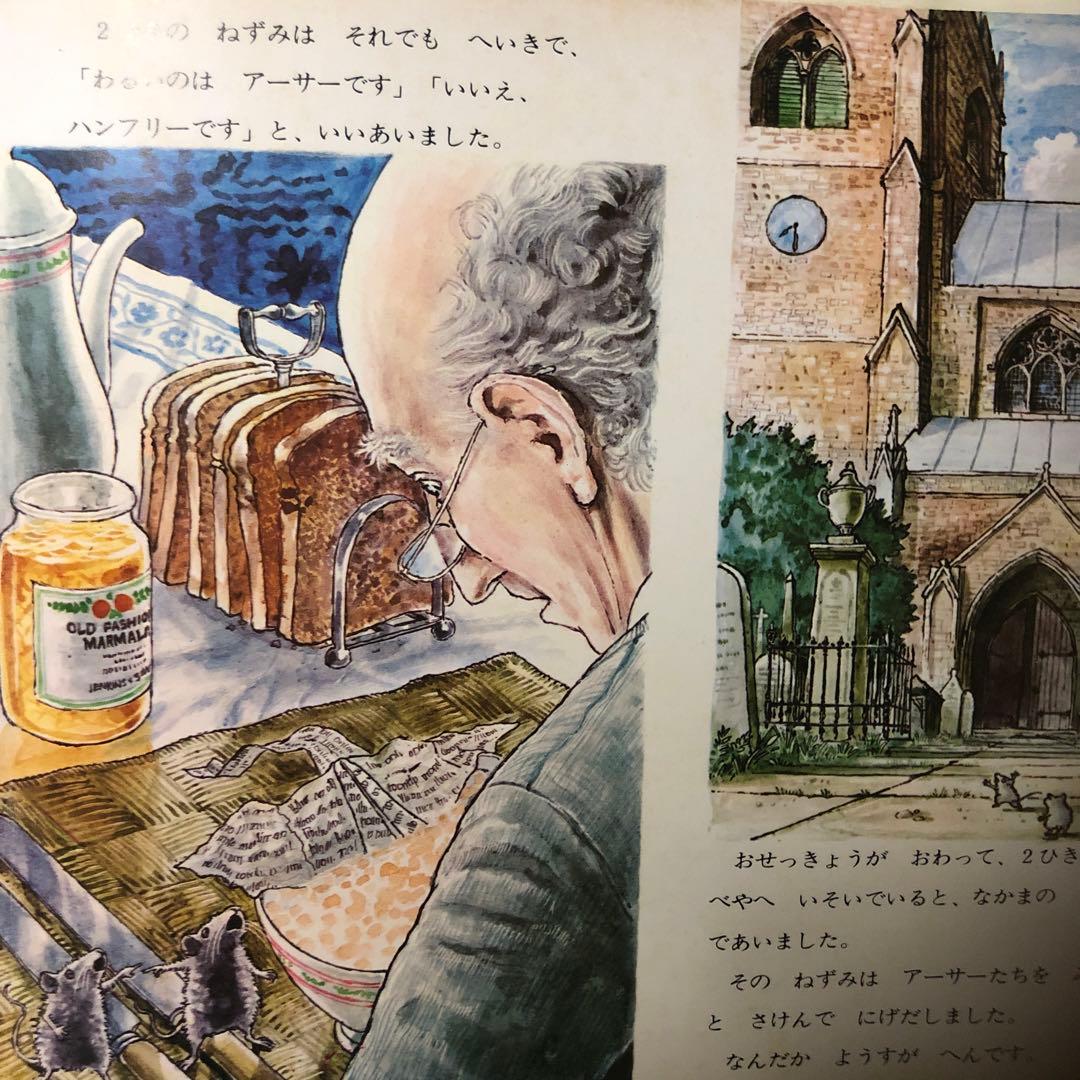 2 の ねずみは それでも へいきで、
「わるいのは アーサーです」「いいえ、
ハンフリーです」と、いいあいました。
OLD FASHIO
MARMALA
JENKINS &
おせっきょうが おわって、2ひき
べやへ いそいでいると、なかまの
であいました。
その ねずみは アーサーたちを
と さけんで にげだしました。
なんだか ようすが へんです。